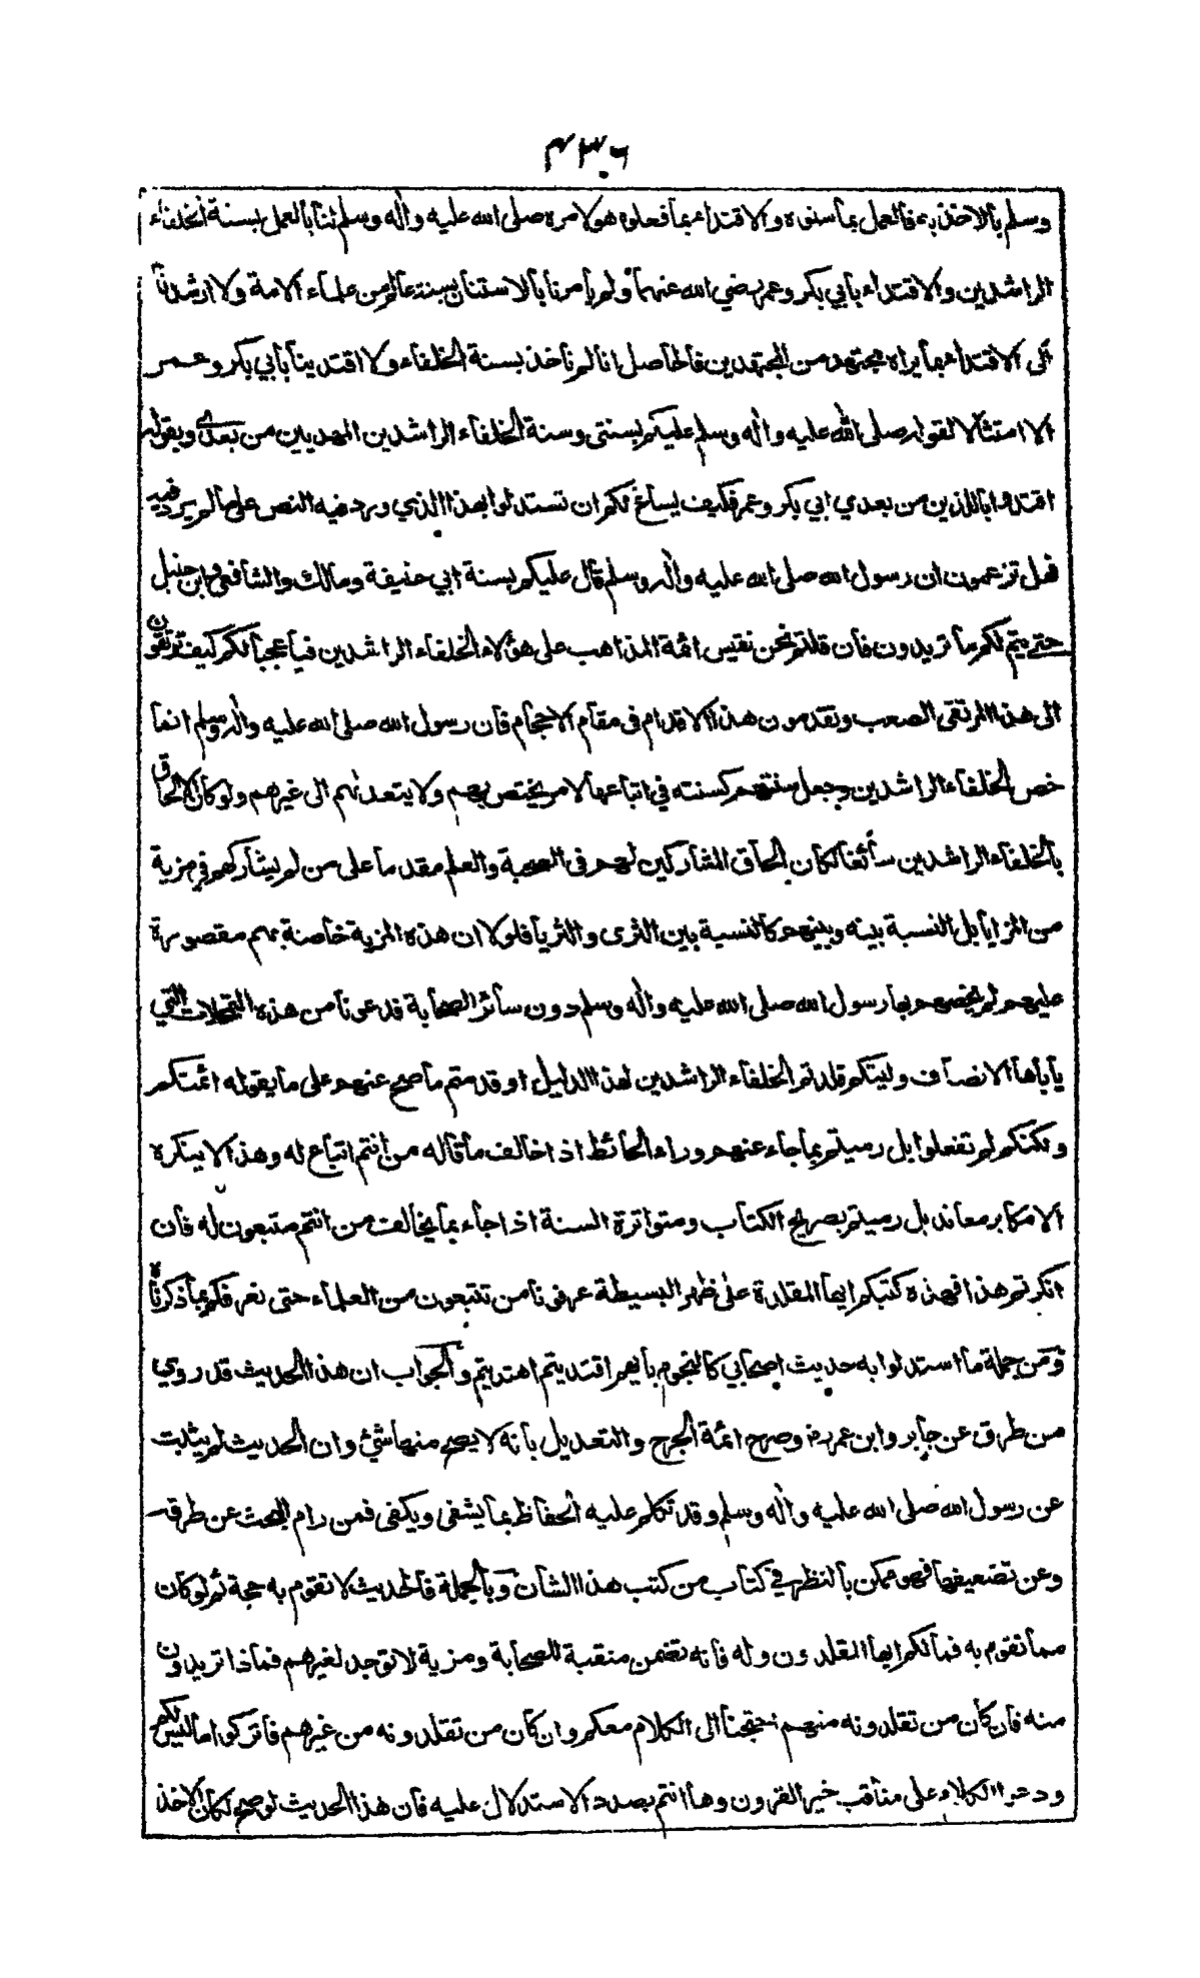 ٤٣٠٦
وسلم بالاخذ به فالعمل بما سنوه والاقتداء بما فعلوه هو لامره صلى الله عليه واله وسلم لنا بالعمل بسنة الخلفاء
الراشدين والاقتداء بابي بكر وعمر رضي الله عنهما ولم يأمرنا بالاستنان بسنة عالم من علماء الامة ولا ارشدنا
الى الاقتداء بما يراه مجتهد من المجتهدين فالحاصل انا لم نأخذ بسنة الخلفاء ولا اقتدينا بابي بكر وعمر
الا امتثالا لقوله صلى الله عليه واله وسلم عليكم بسنتي وسنة الخلفاء الراشدين المهديين من بعدي وبقوله
اقتدوا باللذين من بعدي ابي بكر وعمر فكيف يساغ لكم ان تستدلوا بهذا الذي ورد فيه النص على ما لم يرد فيه
فهل تزعمون ان رسول الله صلى الله عليه واله وسلم قال عليكم بسنة ابي حنيفة ومالك والشافعي وابن حنبل
حتى يتم لكم ما تريدون فان قلتم نحن نقيس ائمة المذاهب على هؤلاء الخلفاء الراشدين فيا عجبا لكم كيف ترتقون
الى هذا المرتقى الصعب وتقدمون هذا الاقدام في مقام الاحجام فان رسول الله صلى الله عليه واله وسلم انما
خص الخلفاء الراشدين وجعل سنتهم كسنته في اتباعها لامر يختص بهم ولا يتعداهم الى غيرهم ولو كان الالحاق
بالخلفاء الراشدين سائغا لكان الحاق المشاركين لهم في الصحبة والعلم مقدما على من لم يشاركهم في مزية
من المزايا بل النسبة بينه وبينهم كالنسبة بين الثرى والثريا فلولا ان هذه المزية خاصة بهم مقصورة
عليهم لم يخصهم بها رسول الله صلى الله عليه واله وسلم دون سائر الصحابة فدعونا من هذه التمحلات التي
يأباها الانصاف وليتكم قلدتم الخلفاء الراشدين لهذا الدليل او قدمتم ما صح عنهم على ما يقوله ائمتكم
ولكنكم لم تفعلوا بل رميتم بما جاء عنهم وراء الحائط اذا خالف ما قاله من انتم اتباع له وهذا لا ينكره
الا مكابر معاند بل رميتم بصريح الكتاب ومتواترة السنة اذا جاء بما يخالف من انتم متبعون له فان
انكرتم هذا فهذه كتبكم ايها المقلدة على ظهر البسيطة عرفونا من تتبعون من العلماء حتى نعرفكم بما ذكرناه
ومن جملة ما استدلوا به حديث اصحابي كالنجوم بايهم اقتديتم اهتديتم والجواب ان هذا الحديث قد روي
من طرق عن جابر وابن عمر رض وصرح ائمة الجرح والتعديل بانه لا يصح منها شئ وان الحديث لم يثبت
عن رسول الله صلى الله عليه واله وسلم وقد تكلم عليه الحفاظ بما يشفي ويكفي فمن رام البحث عن طرقه
وعن تضعيفها فهو ممكن بالنظر في كتاب من كتب هذا الشان وبالجملة فالحديث لا تقوم به حجة ثم لو كان
مما تقوم به فما لكم ايها المقلدون وله فانه تضمن منقبة للصحابة ومزية لا توجد لغيرهم فماذا تريدون
منه فان كان من تقلدونه منهم احتجنا الى الكلام معكم وان كان من تقلدونه من غيرهم فاتركوا ما ليس لكم
ودعوا الكلام على مناقب خير القرون وها انتم بصدد الاستدلال عليه فان هذا الحديث لو صح لكان الاخذ